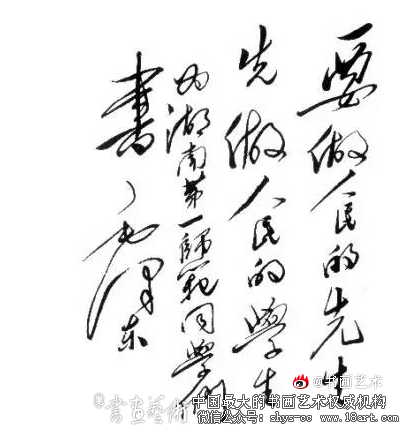 要做人民的先生
先做人民的學生
为湖南第一師範同學們
書
毛澤东
@书画艺术
@書畫藝術
中国最大的书画艺术权威机构
微信公众号：shys-cc www.18art.com